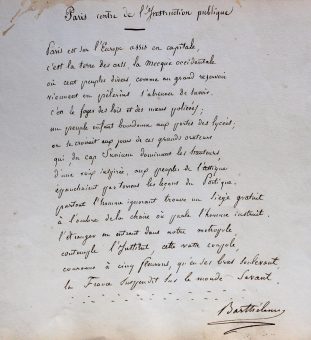 Paris centre de l'Instruction publique
Paris est sur l'Europe assis en capitale,
c'est la terre des arts, la mecque occidentale
où cent peuples divers comme un grand réservoir
viennent en pèlerins s'abreuver de savoir.
c'est le foyer des lois et des mœurs policées;
un peuple enfant bourdonne aux portes des lycées;
on se croirait aux jours de ces grands orateurs
qui du cap Sunium dominant les hauteurs,
d'une voix inspirée, aux peuples de l'attique
épanchaient par torrens les leçons du Portique.
partout l'homme ignorant trouve un siège gratuit
à l'ombre de la chaire où parle l'homme instruit.
l'étranger en entrant dans notre métropole
contemple l'Institut, cette vaste coupole
couronne à cinq fleurons, qu'en ses bras soulevant
la France suspendit sur le monde savant.
Barthélemy